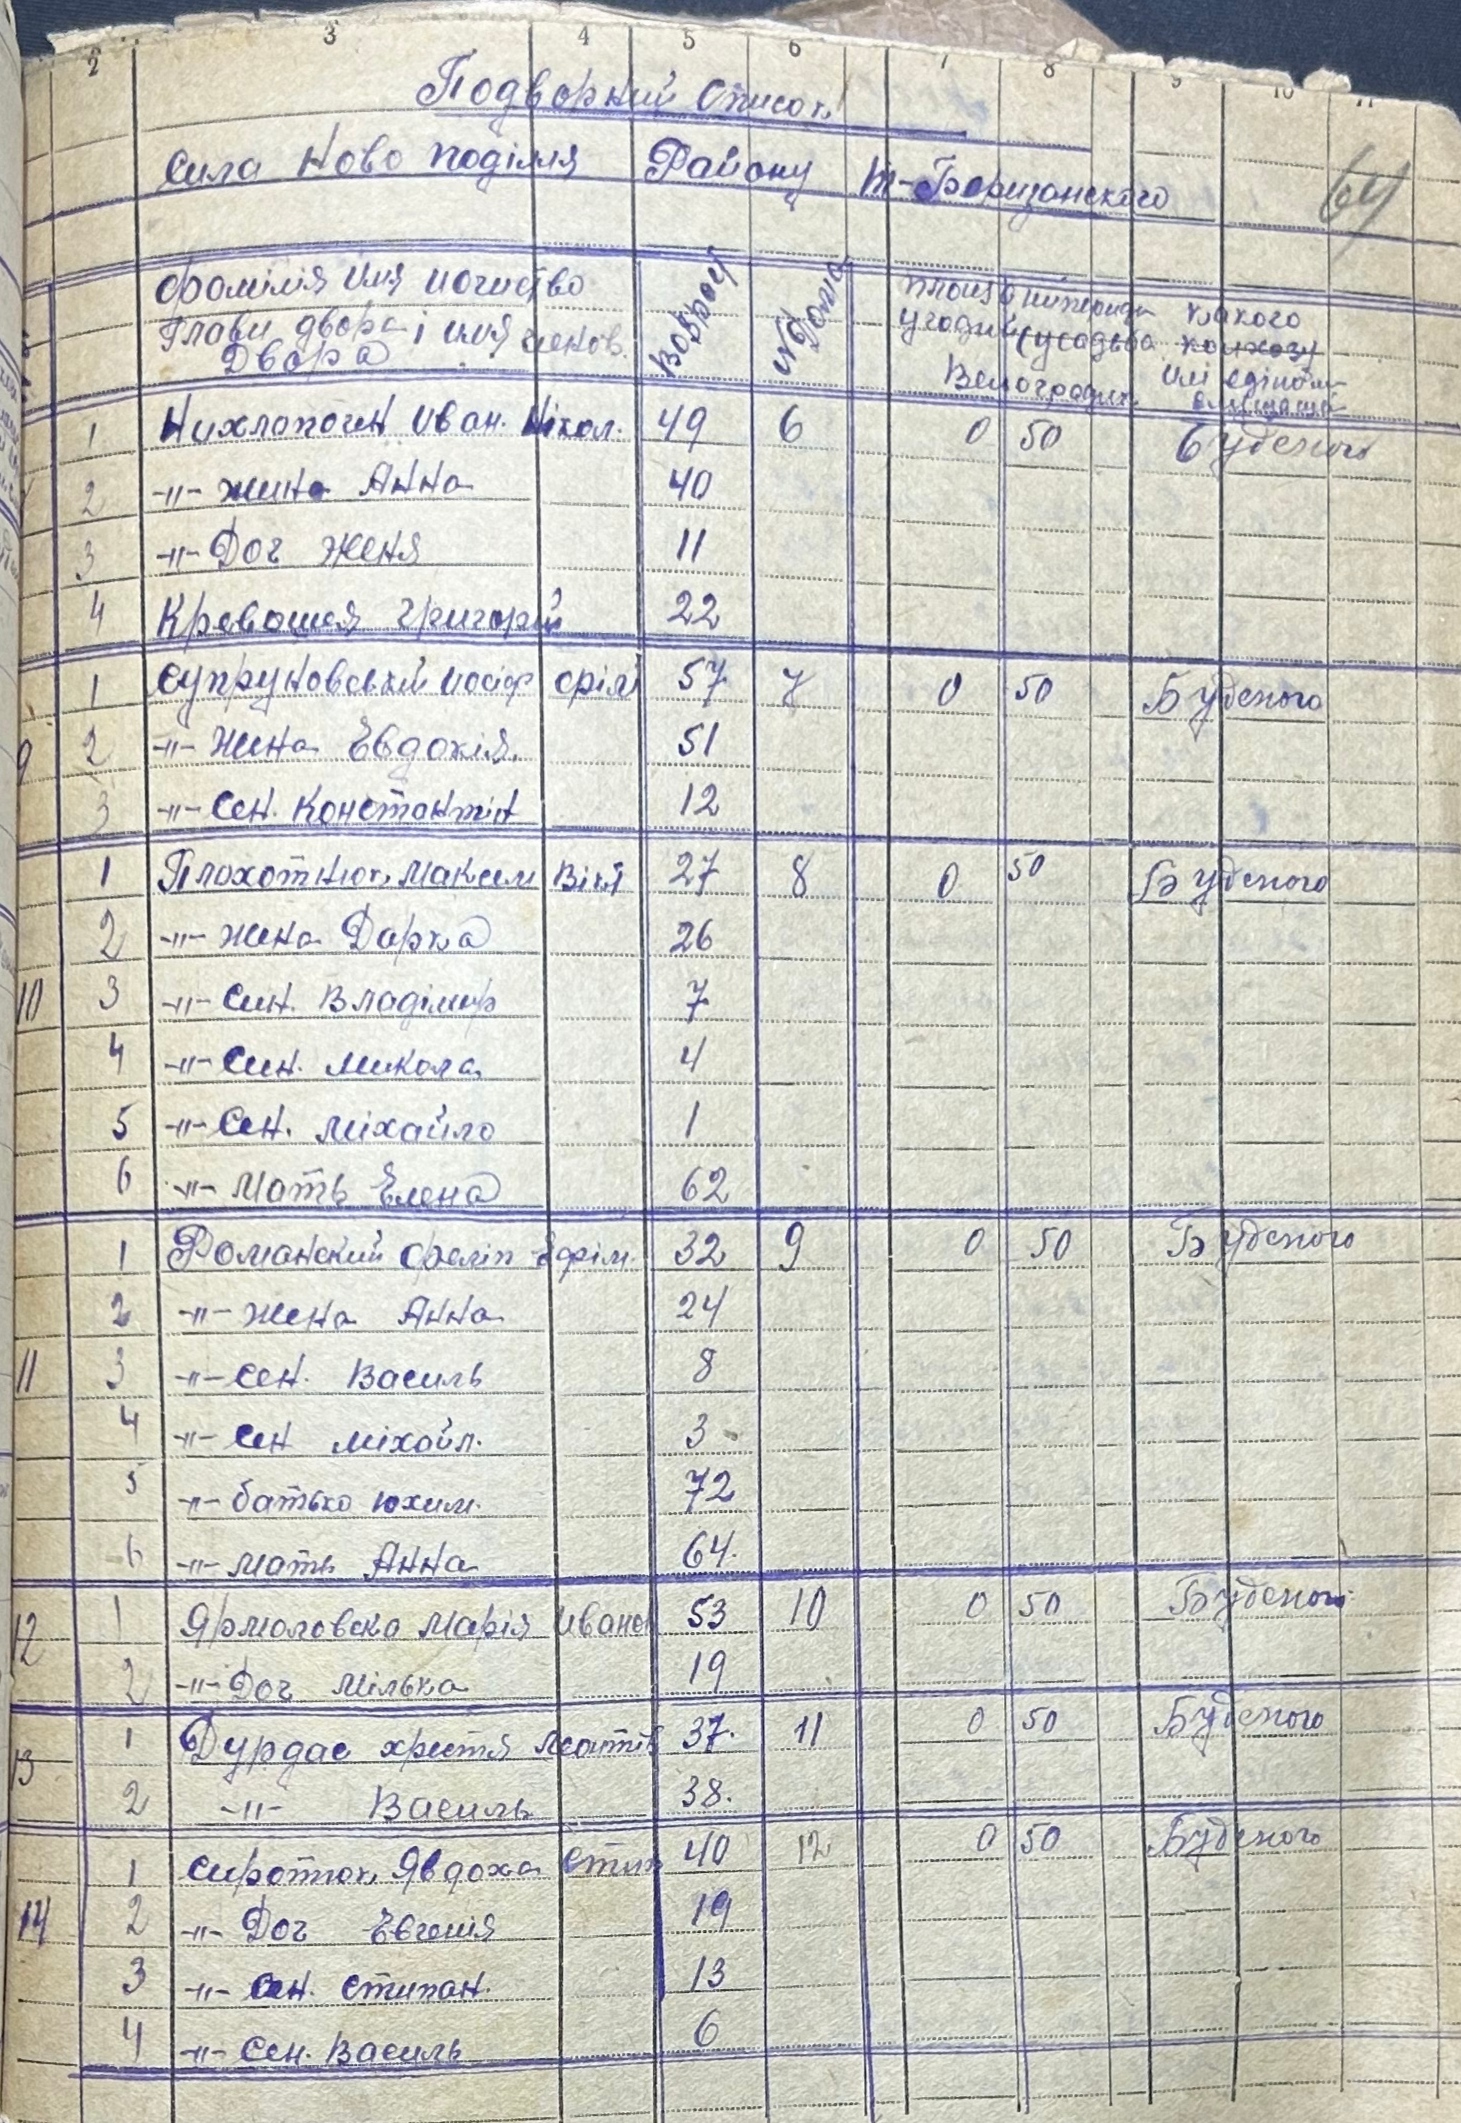 2 3 4 5 6 7 8 9 10 11
Подворний Список
Сила Ново Поділля Району Т-Борщанского
64
Фамілія имя иотчество Возраст № Дома
Глави двора і имя членов. угодий (усадьба какого колхозу
Двора или
1 Нихлопочен Иван. Нікол. 49 6 0 50 Буденого
2 -"- жина Анна 40
3 -"- Доч Женя 11
4 Кревошея Григорій 22
1 Супруновський Иосіф 57 7 0 50 Буденого
9 2 -"- Жена Евдокія. 51
3 -"- Сен. Константін 12
1 Плохотнюк Максим 27 8 0 50 Буденого
2 -"- жена Дарка 26
10 3 -"- Син. Владімир 7
4 -"- Син. Микола 4
5 -"- Сен. Міхайло 1
6 -"- Мать Елена 62
1 Романский Феліп Ефім. 32 9 0 50 Буденого
2 -"- жена Анна 24
11 3 -"- Сен. Василь 8
4 -"- Сен Міхайл. 3
5 -"- батько Юхим. 72
6 -"- мать Анна 64.
12 1 Ярмоловска Марія Иванов 53 10 0 50 Буденого
2 -"- Доч Мілька 19
1 Дурдас Хрестя 37. 11 0 50 Буденого
13 2 -"- Василь 38.
1 Сиротюк Явдоха Степ 40 12 0 50 Буденого
14 2 -"- Доч Евгенія 19
3 -"- Сен. Стипан. 13
4 -"- Сен. Василь 6